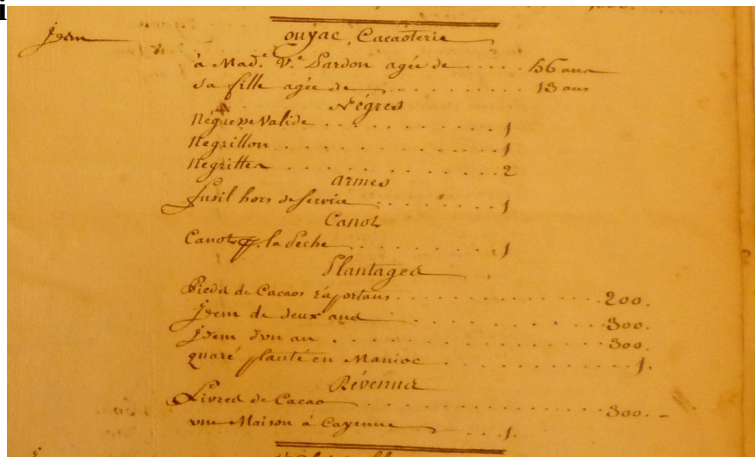 i
Idem
ouyac, Cacaoterie
à Mad.e V.e Dardon agée de .... 56 ans
sa fille agée de .......... 13 ans
Nègres
Négresse Valide .......... 1
Negrillon .......... 1
Negrittes .......... 2
Armes
fusil hors de service ........ 1
Canot
Canot p.r la Peche ........ 1
Plantages
Pieds de Cacaos raportans ............ 200.
Idem de deux ans ............ 300.
Idem d'un an ............ 300.
quaré planté en Manioc ............ 1.
Révenus
Livres de Cacao ............ 300.
une Maison à Cayenne ........ 1.